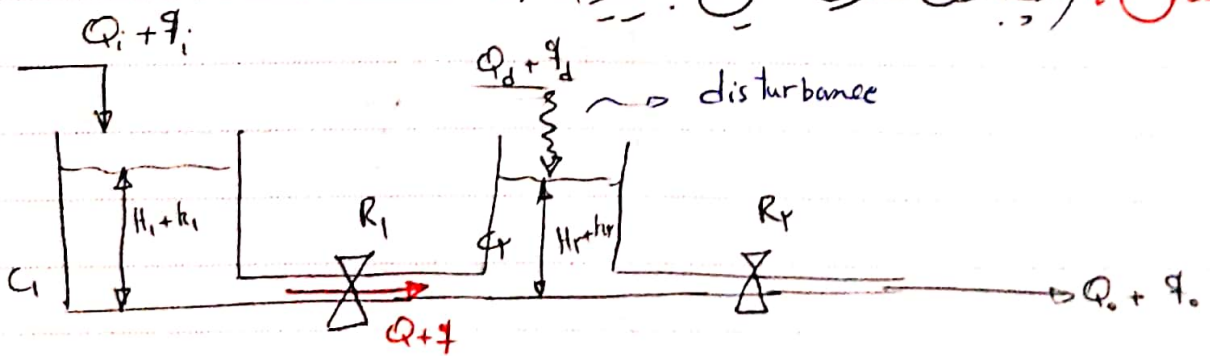 Qᵢ + qᵢ
Q_d + q_d
disturbance
H₁ + h₁
R₁
C₁
H۲ + h۲
C۲
R۲
Q + q
Q₀ + q₀